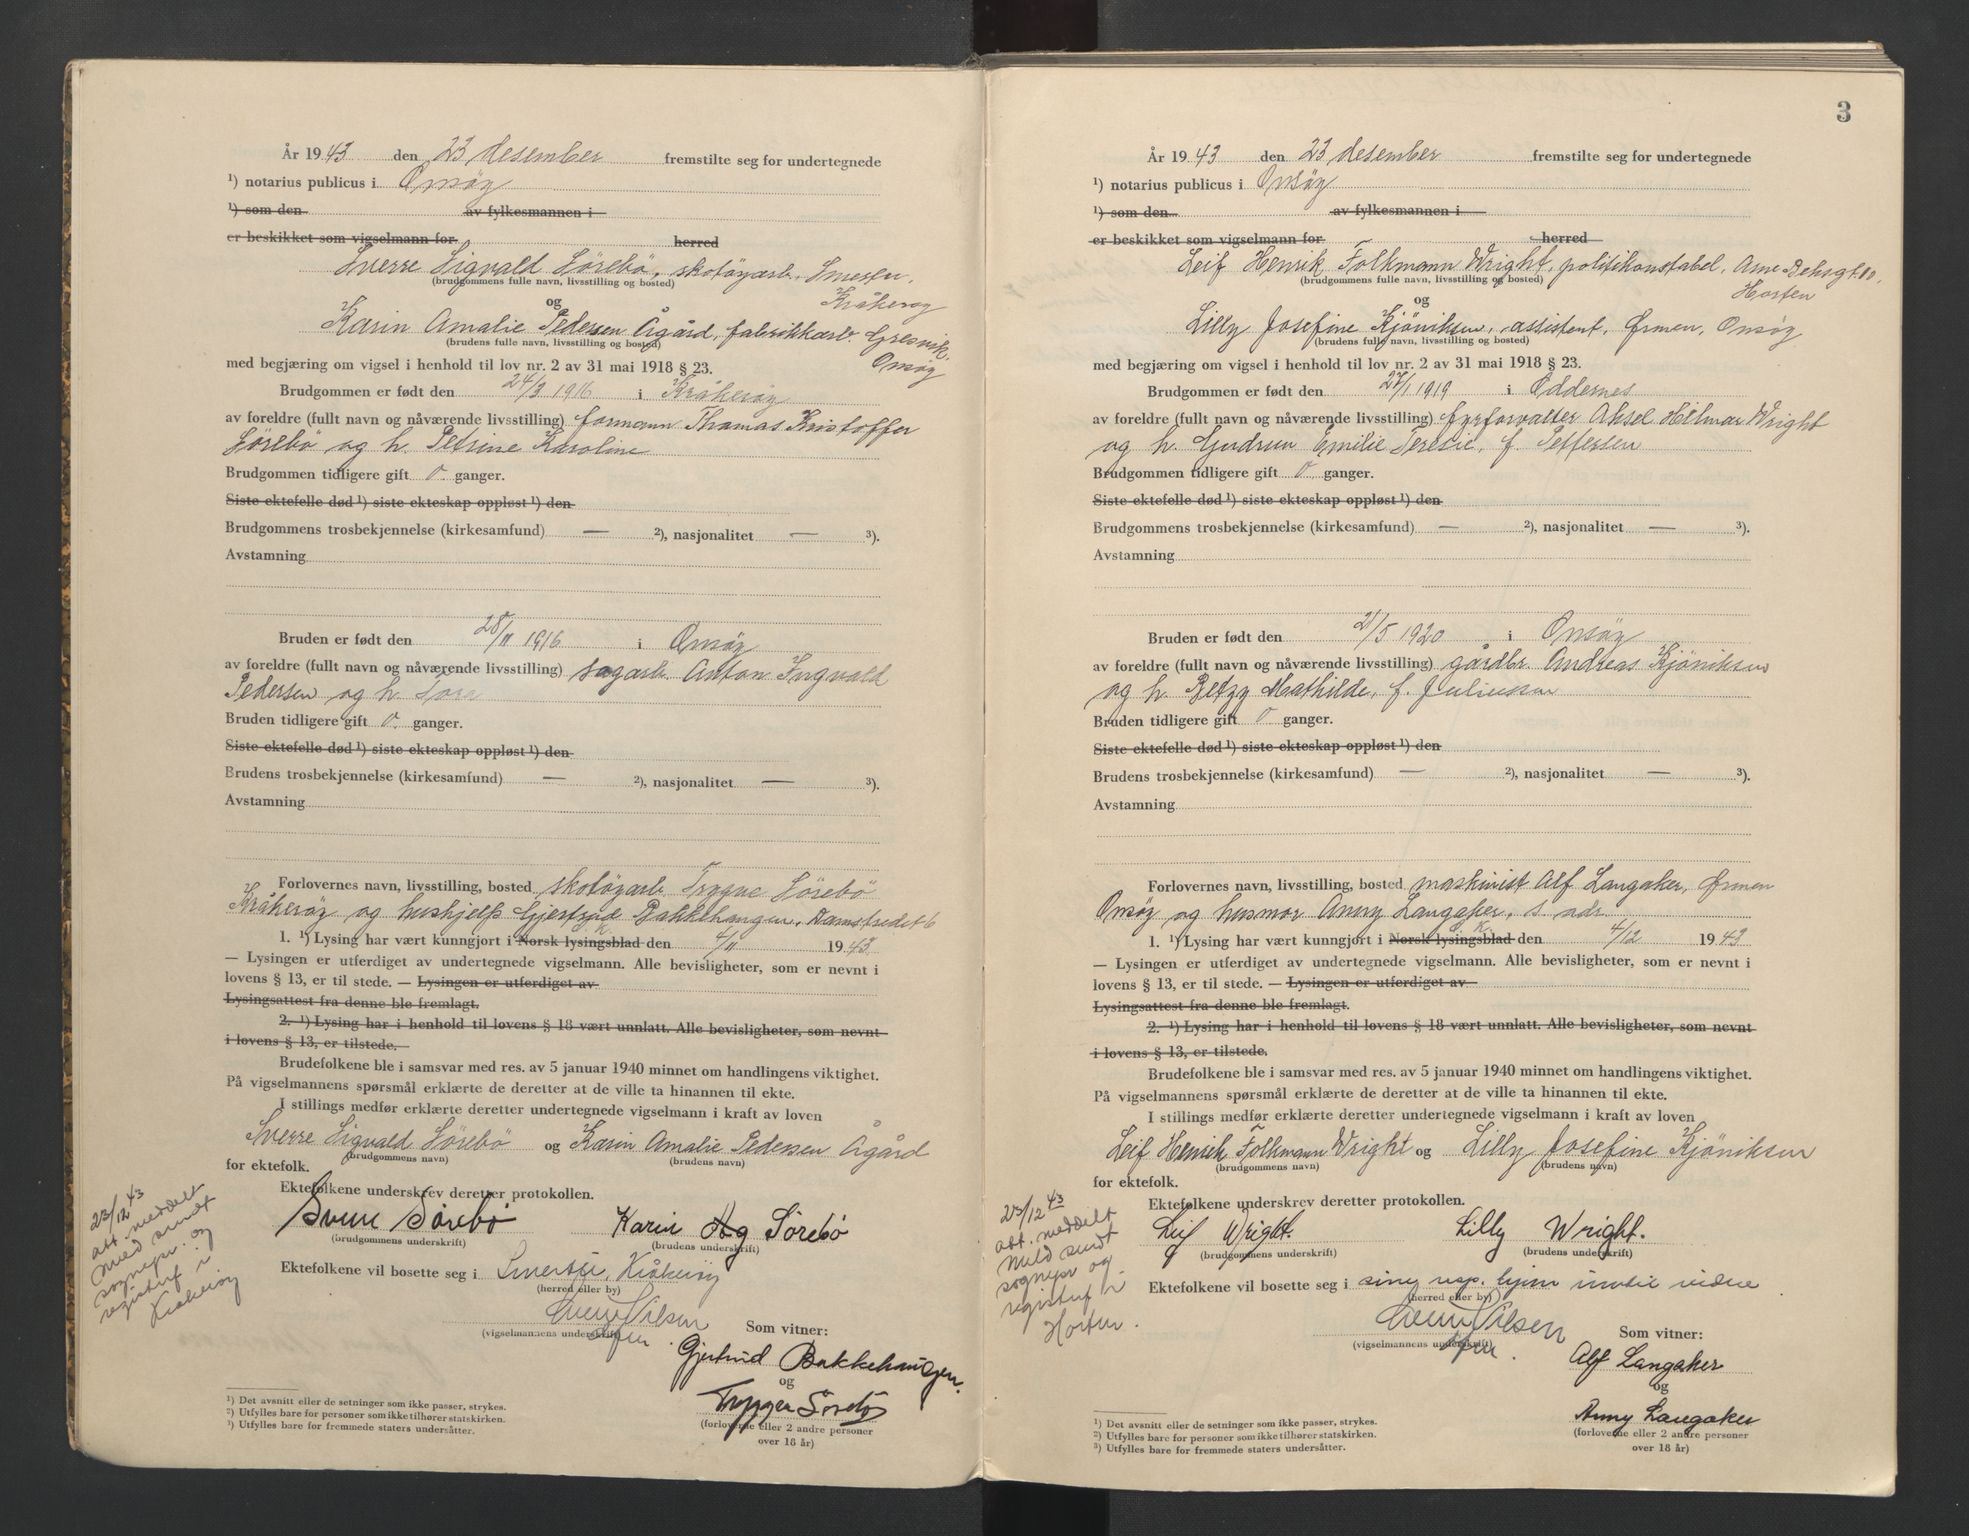 År 1943 den 23 desember fremstilte seg for undertegnede
¹) notarius publicus i Onsøy
¹) som den av fylkesmannen i
er beskikket som vigselmann for herred
Sverre Sigvald Sörebö, skotöyarb. Smertu,
(brudgommens fulle navn, livsstilling og bosted)
Kråkeröy
og
Karin Amalie Pedersen Ågård, fabrikkarb. Gresvik,
(brudens fulle navn, livsstilling og bosted)
Onsöy
med begjæring om vigsel i henhold til lov nr. 2 av 31 mai 1918 § 23.
Brudgommen er født den 24/3 1916 i Kråkeröy
av foreldre (fullt navn og nåværende livsstilling) formann Thomas Kristoffer
Sörebö og h. Petrine Karoline
Brudgommen tidligere gift 0 ganger.
Siste ektefelle død ¹) siste ekteskap oppløst ¹) den
Brudgommens trosbekjennelse (kirkesamfund) — ²), nasjonalitet — ³).
Avstamning
Bruden er født den 28/11 1916 i Onsöy
av foreldre (fullt navn og nåværende livsstilling) sagarb. Anton Ingvald
Pedersen og h. Tora
Bruden tidligere gift 0 ganger.
Siste ektefelle død ¹) siste ekteskap oppløst ¹) den
Brudens trosbekjennelse (kirkesamfund) — ²), nasjonalitet — ³).
Avstamning
Forlovernes navn, livsstilling, bosted skotöyarb Trygve Sörebö
Kråkeröy og hushjelp Gjertrud Bakkehaugen, Damstredet 6
1. ¹) Lysing har vært kunngjort i Norsk lysingsblad den 4/11 1943
— Lysingen er utferdiget av undertegnede vigselmann. Alle bevisligheter, som er nevnt i
lovens § 13, er til stede. — Lysingen er utferdiget av
Lysingsattest fra denne ble fremlagt.
2. ¹) Lysing har i henhold til lovens § 18 vært unnlatt. Alle bevisligheter, som nevnt
i lovens § 13, er tilstede.
Brudefolkene ble i samsvar med res. av 5 januar 1940 minnet om handlingens viktighet.
På vigselmannens spørsmål erklærte de deretter at de ville ta hinannen til ekte.
I stillings medfør erklærte deretter undertegnede vigselmann i kraft av loven
Sverre Sigvald Sörebö og Karin Amalie Pedersen Ågård
(brudgommens navn) (brudens navn)
for ektefolk.
Ektefolkene underskrev deretter protokollen.
Sverre Sörebö Karin Sörebö
(brudgommens underskrift) (brudens underskrift)
Ektefolkene vil bosette seg i Kråkeröy
(herred eller by)
Nilsen
(vigselmannens underskrift)
Som vitner:
Gjertrud Bakkehaugen.
og
Trygve Sörebö
(forloverne eller 2 andre personer
over 18 år)
¹) Det avsnitt eller de setninger som ikke passer, strykes.
²) Utfylles bare for personer som ikke tilhører statskirken.
³) Utfylles bare for fremmede staters undersåtter.
23/12 43
att. meddelt
Meld sendt
sognepr. og
registerf i
Kråkeröy
3
År 1943 den 23 desember fremstilte seg for undertegnede
¹) notarius publicus i Onsöy
¹) som den av fylkesmannen i
er beskikket som vigselmann for herred
Leif Henrik Folkmann Wright, politikonstabel, Arne
(brudgommens fulle navn, livsstilling og bosted)
Horten
og
Lilly Josefine Kjöniksen, assistent, Ørmen, Onsöy
(brudens fulle navn, livsstilling og bosted)
med begjæring om vigsel i henhold til lov nr. 2 av 31 mai 1918 § 23.
Brudgommen er født den 27/1 1919 i Oddernes
av foreldre (fullt navn og nåværende livsstilling) fyrforvalter Aksel Hilmar Wright
og h. Gudrun Emilie Teresie, f. Pettersen
Brudgommen tidligere gift 0 ganger.
Siste ektefelle død ¹) siste ekteskap oppløst ¹) den
Brudgommens trosbekjennelse (kirkesamfund) — ²), nasjonalitet — ³).
Avstamning
Bruden er født den 21/5 1920 i Onsöy
av foreldre (fullt navn og nåværende livsstilling) gårdbr. Andreas Kjöniksen
og h. Betzy Mathilde, f. Juliussen
Bruden tidligere gift 0 ganger.
Siste ektefelle død ¹) siste ekteskap oppløst ¹) den
Brudens trosbekjennelse (kirkesamfund) — ²), nasjonalitet — ³).
Avstamning
Forlovernes navn, livsstilling, bosted maskinist Alf Langaker, Ørmen
Onsöy og husmor Anny Langaker, s. adr.
1. ¹) Lysing har vært kunngjort i Norsk lysingsblad den 4/12 1943
— Lysingen er utferdiget av undertegnede vigselmann. Alle bevisligheter, som er nevnt i
lovens § 13, er til stede. — Lysingen er utferdiget av
Lysingsattest fra denne ble fremlagt.
2. ¹) Lysing har i henhold til lovens § 18 vært unnlatt. Alle bevisligheter, som nevnt
i lovens § 13, er tilstede.
Brudefolkene ble i samsvar med res. av 5 januar 1940 minnet om handlingens viktighet.
På vigselmannens spørsmål erklærte de deretter at de ville ta hinannen til ekte.
I stillings medfør erklærte deretter undertegnede vigselmann i kraft av loven
Leif Henrik Folkmann Wright og Lilly Josefine Kjöniksen
(brudgommens navn) (brudens navn)
for ektefolk.
Ektefolkene underskrev deretter protokollen.
Leif Wright. Lilly Wright.
(brudgommens underskrift) (brudens underskrift)
Ektefolkene vil bosette seg i sine resp. hjem inntil videre
(herred eller by)
Nilsen
(vigselmannens underskrift)
Som vitner:
Alf Langaker
og
Anny Langaker
(forloverne eller 2 andre personer
over 18 år)
¹) Det avsnitt eller de setninger som ikke passer, strykes.
²) Utfylles bare for personer som ikke tilhører statskirken.
³) Utfylles bare for fremmede staters undersåtter.
23/12 43
att. meddelt
Meld sendt
sognepr og
registerf i
Horten.